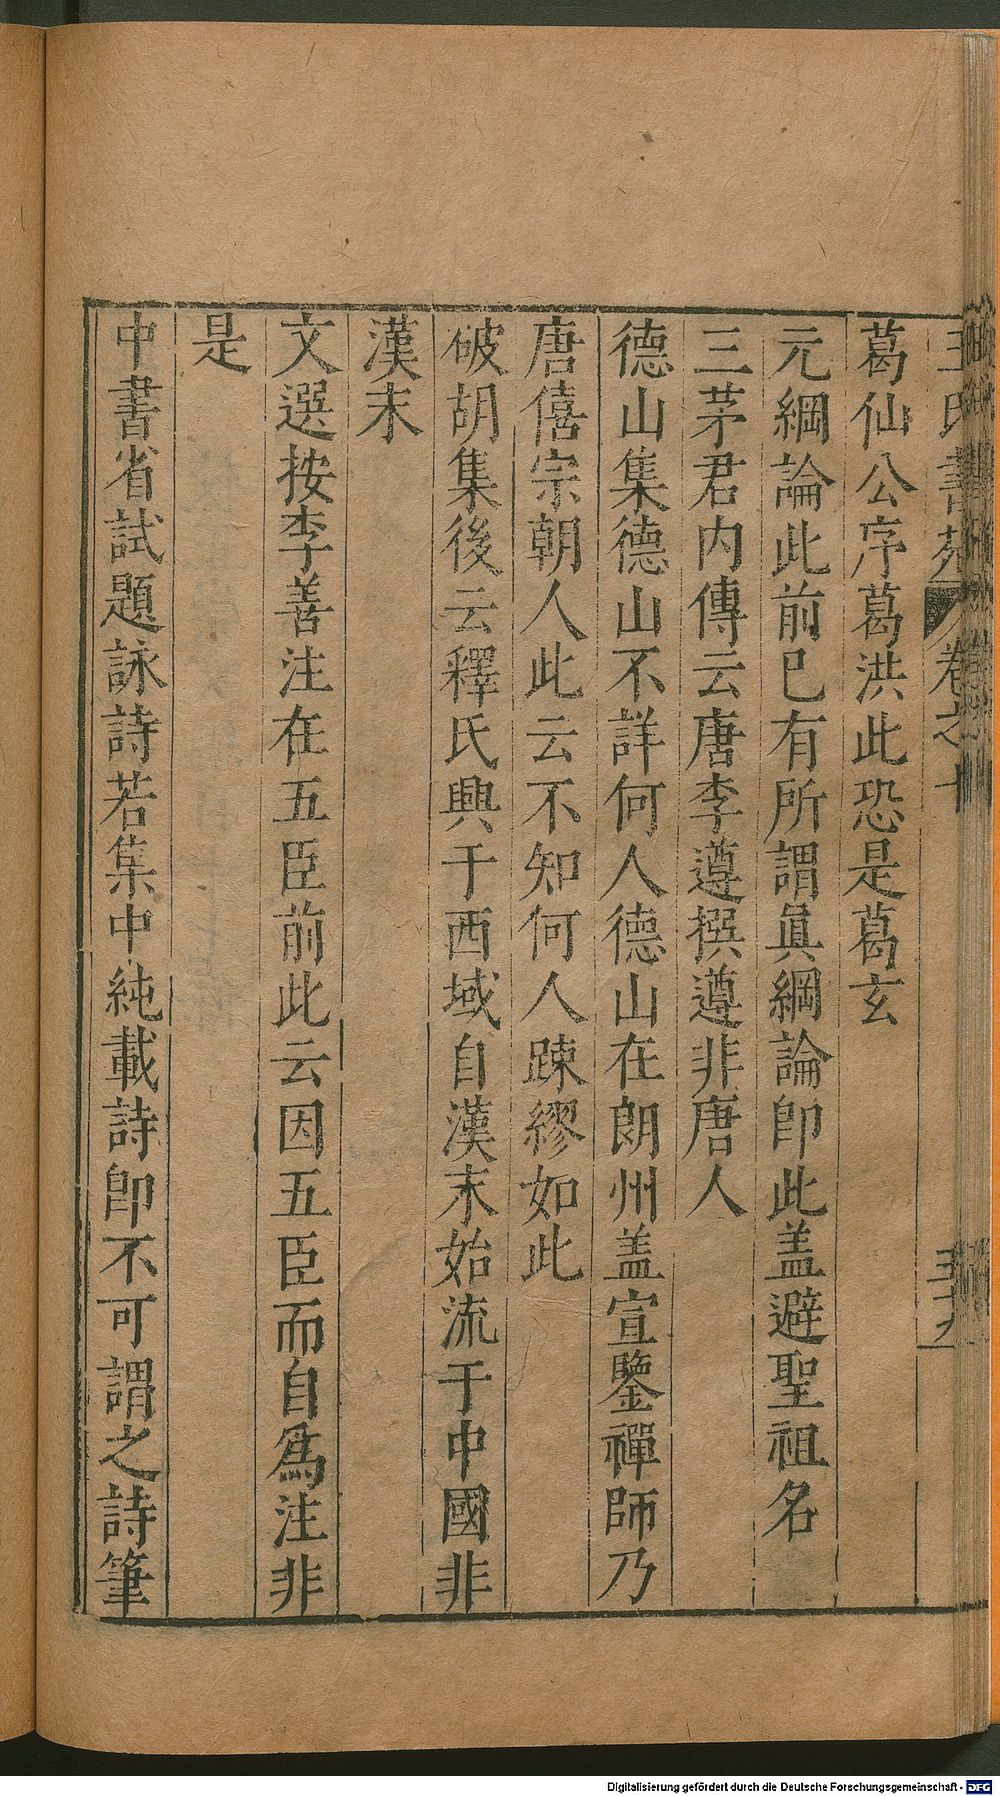 王氏書苑 卷之十
葛仙公序葛洪此恐是葛玄
元綱論此前已有所謂眞綱論卽此盖避聖祖名
三茅君内傳云唐李遵撰遵非唐人
德山集德山不詳何人德山在朗州盖宣鑒禪師乃
唐僖宗朝人此云不知何人踈繆如此
破胡集後云釋氏興于西域自漢末始流于中國非
漢末
文選按李善注在五臣前此云因五臣而自爲注非
是
中書省試題詠詩若集中純載詩卽不可謂之詩筆
Digitalisierung gefördert durch die Deutsche Forschungsgemeinschaft - DFG